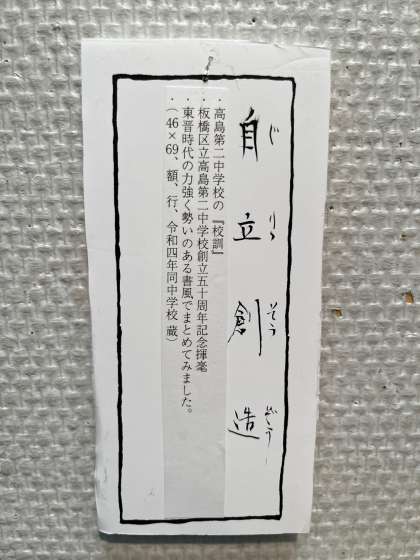 自立創造
じりつそうぞう
・高島第二中学校の『校訓』
・板橋区立高島第二中学校創立五十周年記念揮毫
・東晋時代の力強く勢いのある書風でまとめてみました。
・(46×69、額、行、令和四年同中学校 蔵)